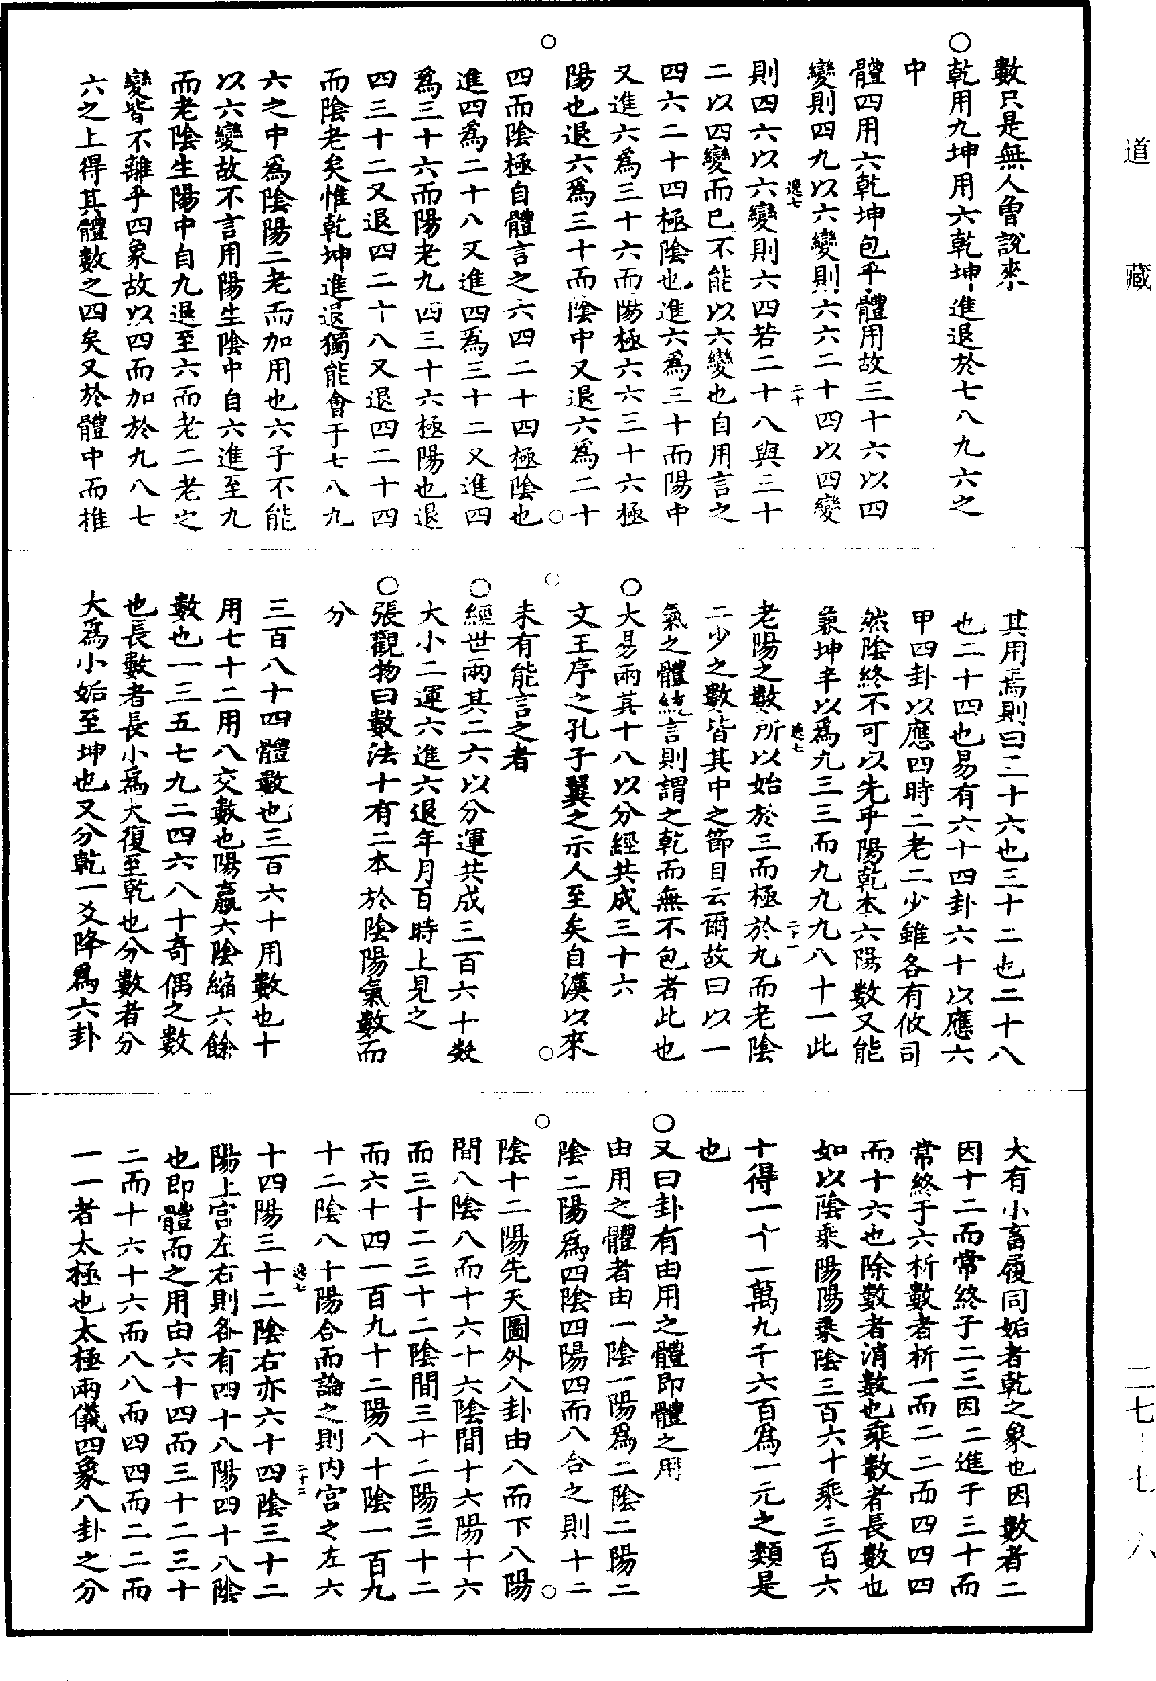 道藏
數只是無人會說來
○乾用九坤用六乾坤進退於七八九六之
中
體四用六乾坤包乎體用故三十六以四
變則四九以六變則六六二十四以四變
則四六以六變則六四若二十八與三十
二以四變而已不能以六變也自用言之
四六二十四極陰也進六爲三十而陽中
又進六爲三十六而陽極六六三十六極
陽也退六爲三十而陰中又退六爲二十
四而陰極自體言之六四二十四極陰也
進四爲二十八又進四爲三十二又進四
爲三十六而陽老九四三十六極陽也退
四三十二又退四二十八又退四二十四
而陰老矣惟乾坤進退獨能會于七八九
六之中爲陰陽二老而加用也六子不能
以六變故不言用陽生陰中自六進至九
而老陰生陽中自九退至六而老二老之
變皆不離乎四象故以四而加於九八七
六之上得其體數之四矣又於體中而推
其用焉則曰三十六也三十二也二十八
也二十四也易有六十四卦六十以應六
甲四卦以應四時二老二少雖各有攸司
然陰終不可以先乎陽乾本六陽數又能
兼坤半以爲九三三而九九九八十一此
老陽之數所以始於三而極於九而老陰
二少之數皆其中之節目云爾故曰以一
氣之體統言則謂之乾而無不包者此也
○大易兩其十八以分經共成三十六
文王序之孔子翼之示人至矣自漢以來
未有能言之者
○經世兩其二六以分運共成三百六十數
大小二運六進六退年月百時上見之
○張觀物曰數法十有二本於陰陽氣數而
分
三百八十四體數也三百六十用數也十
用七十二用八交數也陽嬴六陰縮六餘
數也一三五七九二四六八十奇偶之數
也長數者長小爲大復至乾也分數者分
大爲小姤至坤也又分乾一爻降爲六卦
大有小畜履同姤者乾之象也因數者二
因十二而常終于二三因二進于三十而
常終于六析數者析一而二二而四四四
而十六也除數者消數也乘數者長數也
如以陰乘陽陽乘陰三百六十乘三百六
十得一十一萬九千六百爲一元之類是
也
○又曰卦有由用之體即體之用
由用之體者由一陰一陽爲二陰二陽二
陰二陽爲四陰四陽四而八合之則十二
陰十二陽先天圖外八卦由八而下八陽
間八陰八而十六十六陰間十六陽十六
而三十二三十二陰間三十二陽三十二
而六十四一百九十二陽八十陰一百九
十二陰八十陽合而論之則內宮之左六
十四陽三十二陰右亦六十四陰三十二
陽上宮左右則各有四十八陽四十八陰
也即體而之用由六十四而三十二三十
二而十六十六而八八而四四而二二而
一一者太極也太極兩儀四象八卦之分
逸七
二十
逸七
二十一
逸七
二十二
二七-七六